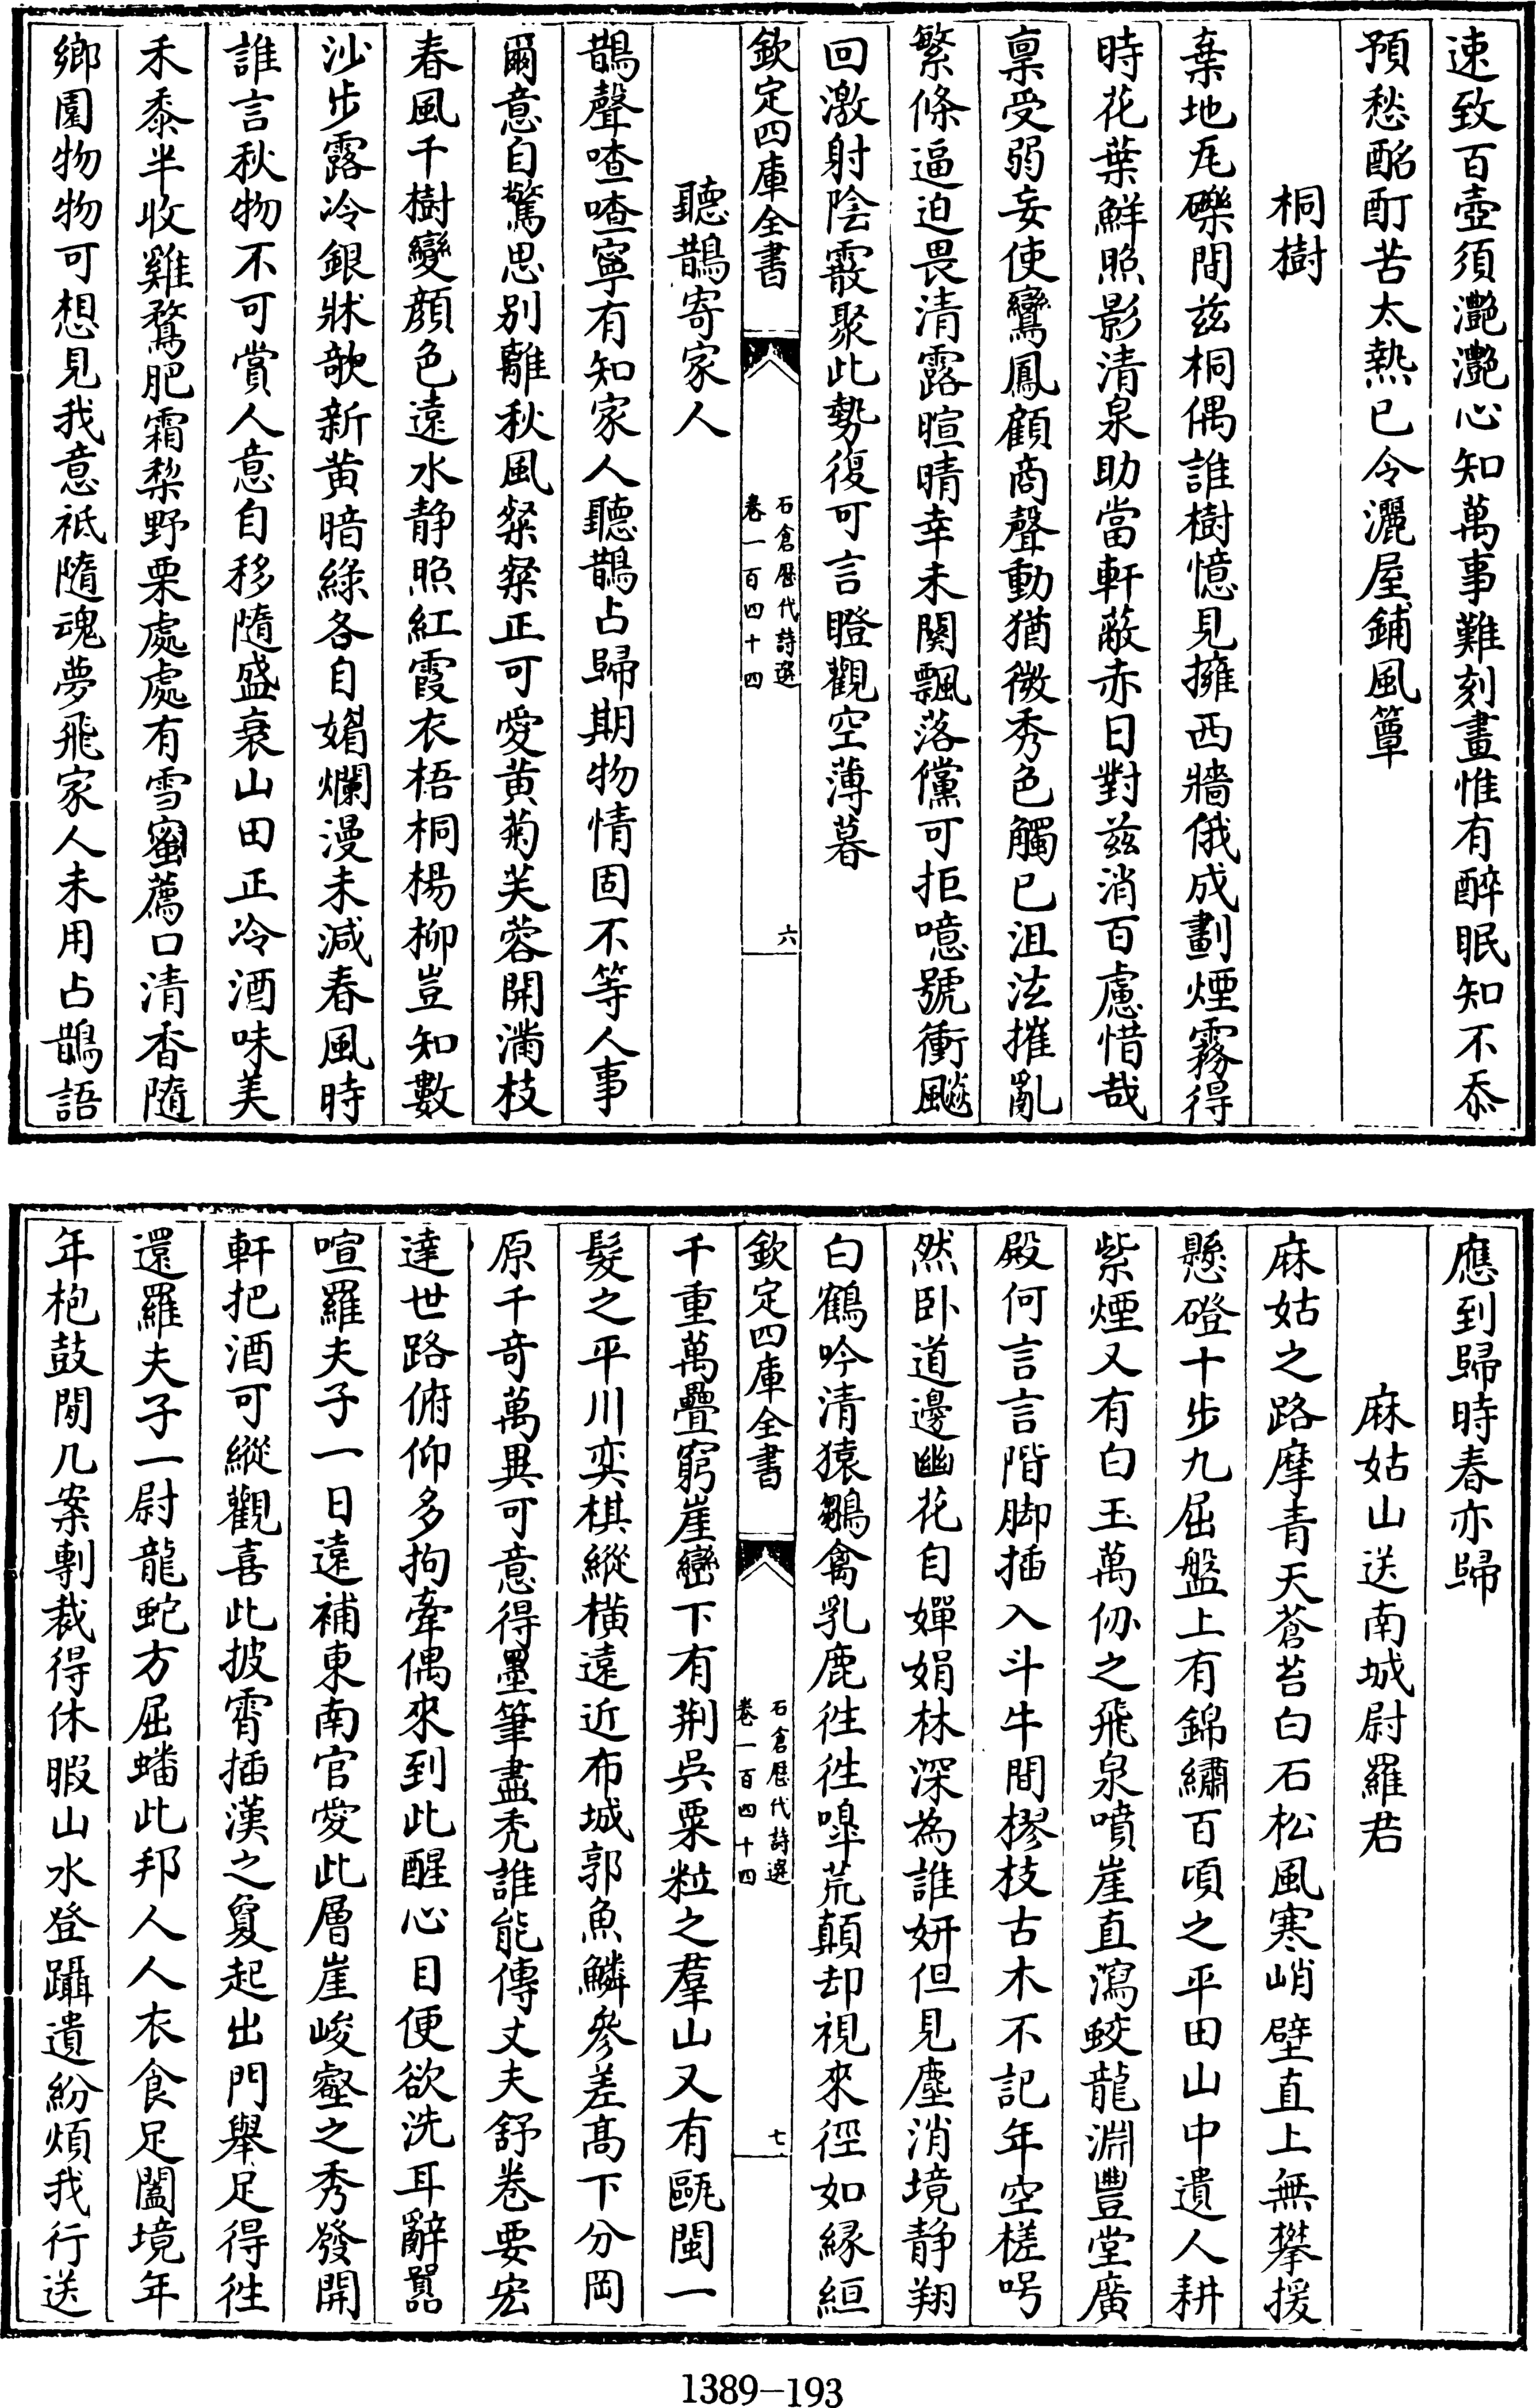 速致百壺須灔灔心知萬事難刻畫惟有醉眠知不忝
預愁酩酊苦太熱已令灑屋鋪風簟
桐樹
棄地瓦礫間兹桐偶誰樹憶見擁西牆俄成劃煙霧得
時花葉鮮照影清泉助當軒蔽赤日對兹消百慮惜哉
稟受弱妄使鸞鳳顧商聲動猶微秀色觸已沮泫摧亂
繁條逼迫畏清露暄晴幸未闋飄落儻可拒噫號衝飇
回激射陰霰聚此勢復可言瞪觀空薄暮
欽定四庫全書
石倉歴代詩選
卷一百四十四
六
聽鵲寄家人
鵲聲喳喳寧有知家人聽鵲占歸期物情固不等人事
爾意自驚思别離秋風粲粲正可愛黄菊芙蓉開滿枝
春風千樹變顔色遠水静照紅霞衣梧桐楊柳豈知數
沙步露冷銀牀欹新黄暗緑各自媚爛漫未減春風時
誰言秋物不可賞人意自移隨盛衰山田正冷酒味美
禾黍半收雞鶩肥霜梨野栗處處有雪蜜薦口清香隨
鄉園物物可想見我意祇隨魂夢飛家人未用占鵲語
應到歸時春亦歸
麻姑山送南城尉羅君
麻姑之路摩青天蒼苔白石松風寒峭壁直上無攀援
懸磴十步九屈盤上有錦繡百頃之平田山中遺人耕
紫煙又有白玉萬仞之飛泉噴崖直瀉蛟龍淵豐堂廣
殿何言言階脚插入斗牛間樛枝古木不記年空槎呺
然卧道邊幽花自嬋娟林深為誰妍但見塵消境静翔
白鶴吟清猿鶵禽乳鹿徃徃嘷荒顛却視來徑如縁絙
欽定四庫全書
石倉歴代詩選
卷一百四十四
七
千重萬疊窮崖巒下有荆吳粟粒之羣山又有甌閩一
髮之平川奕棋縱橫遠近布城郭魚鱗參差髙下分岡
原千竒萬異可意得墨筆盡秃誰能傳丈夫舒卷要宏
達世路俯仰多拘牽偶來到此醒心目便欲洗耳辭囂
喧羅夫子一日遠補東南官愛此層崖峻壑之秀發開
軒把酒可縱觀喜此披霄插漢之夐起出門舉足得徃
還羅夫子一尉龍蛇方屈蟠此邦人人衣食足闔境年
年枹鼓閒几案剸裁得休暇山水登躡遺紛煩我行送
1389-193